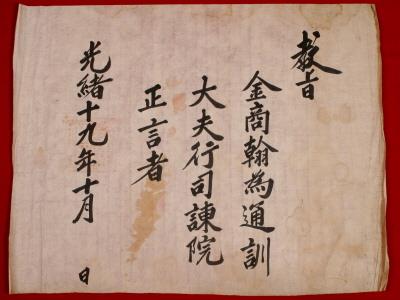 教旨
金商翰為通訓
大夫行司諫院
正言者
光緖十九年十月
日